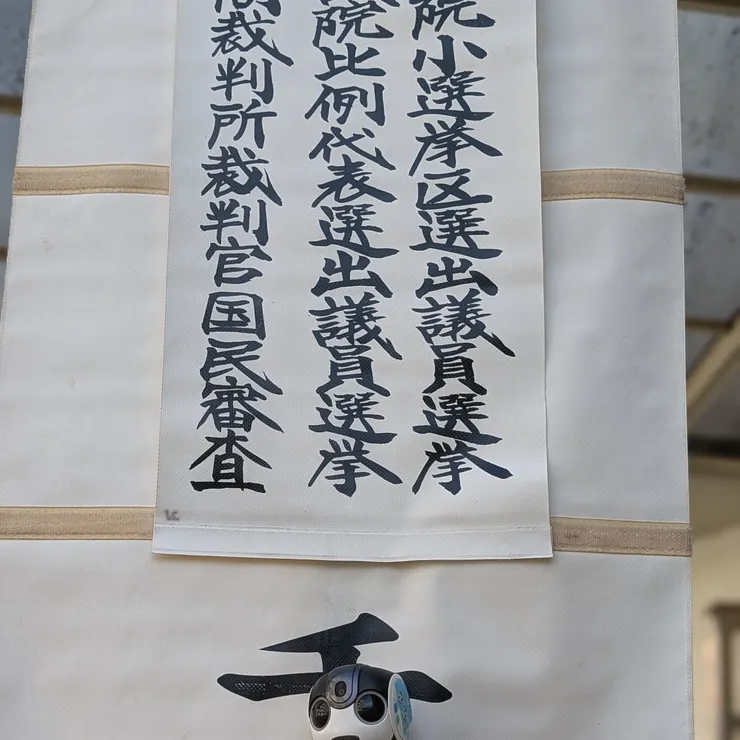 院小選挙区選出議員選挙
院比例代表選出議員選挙
裁判所裁判官国民審査